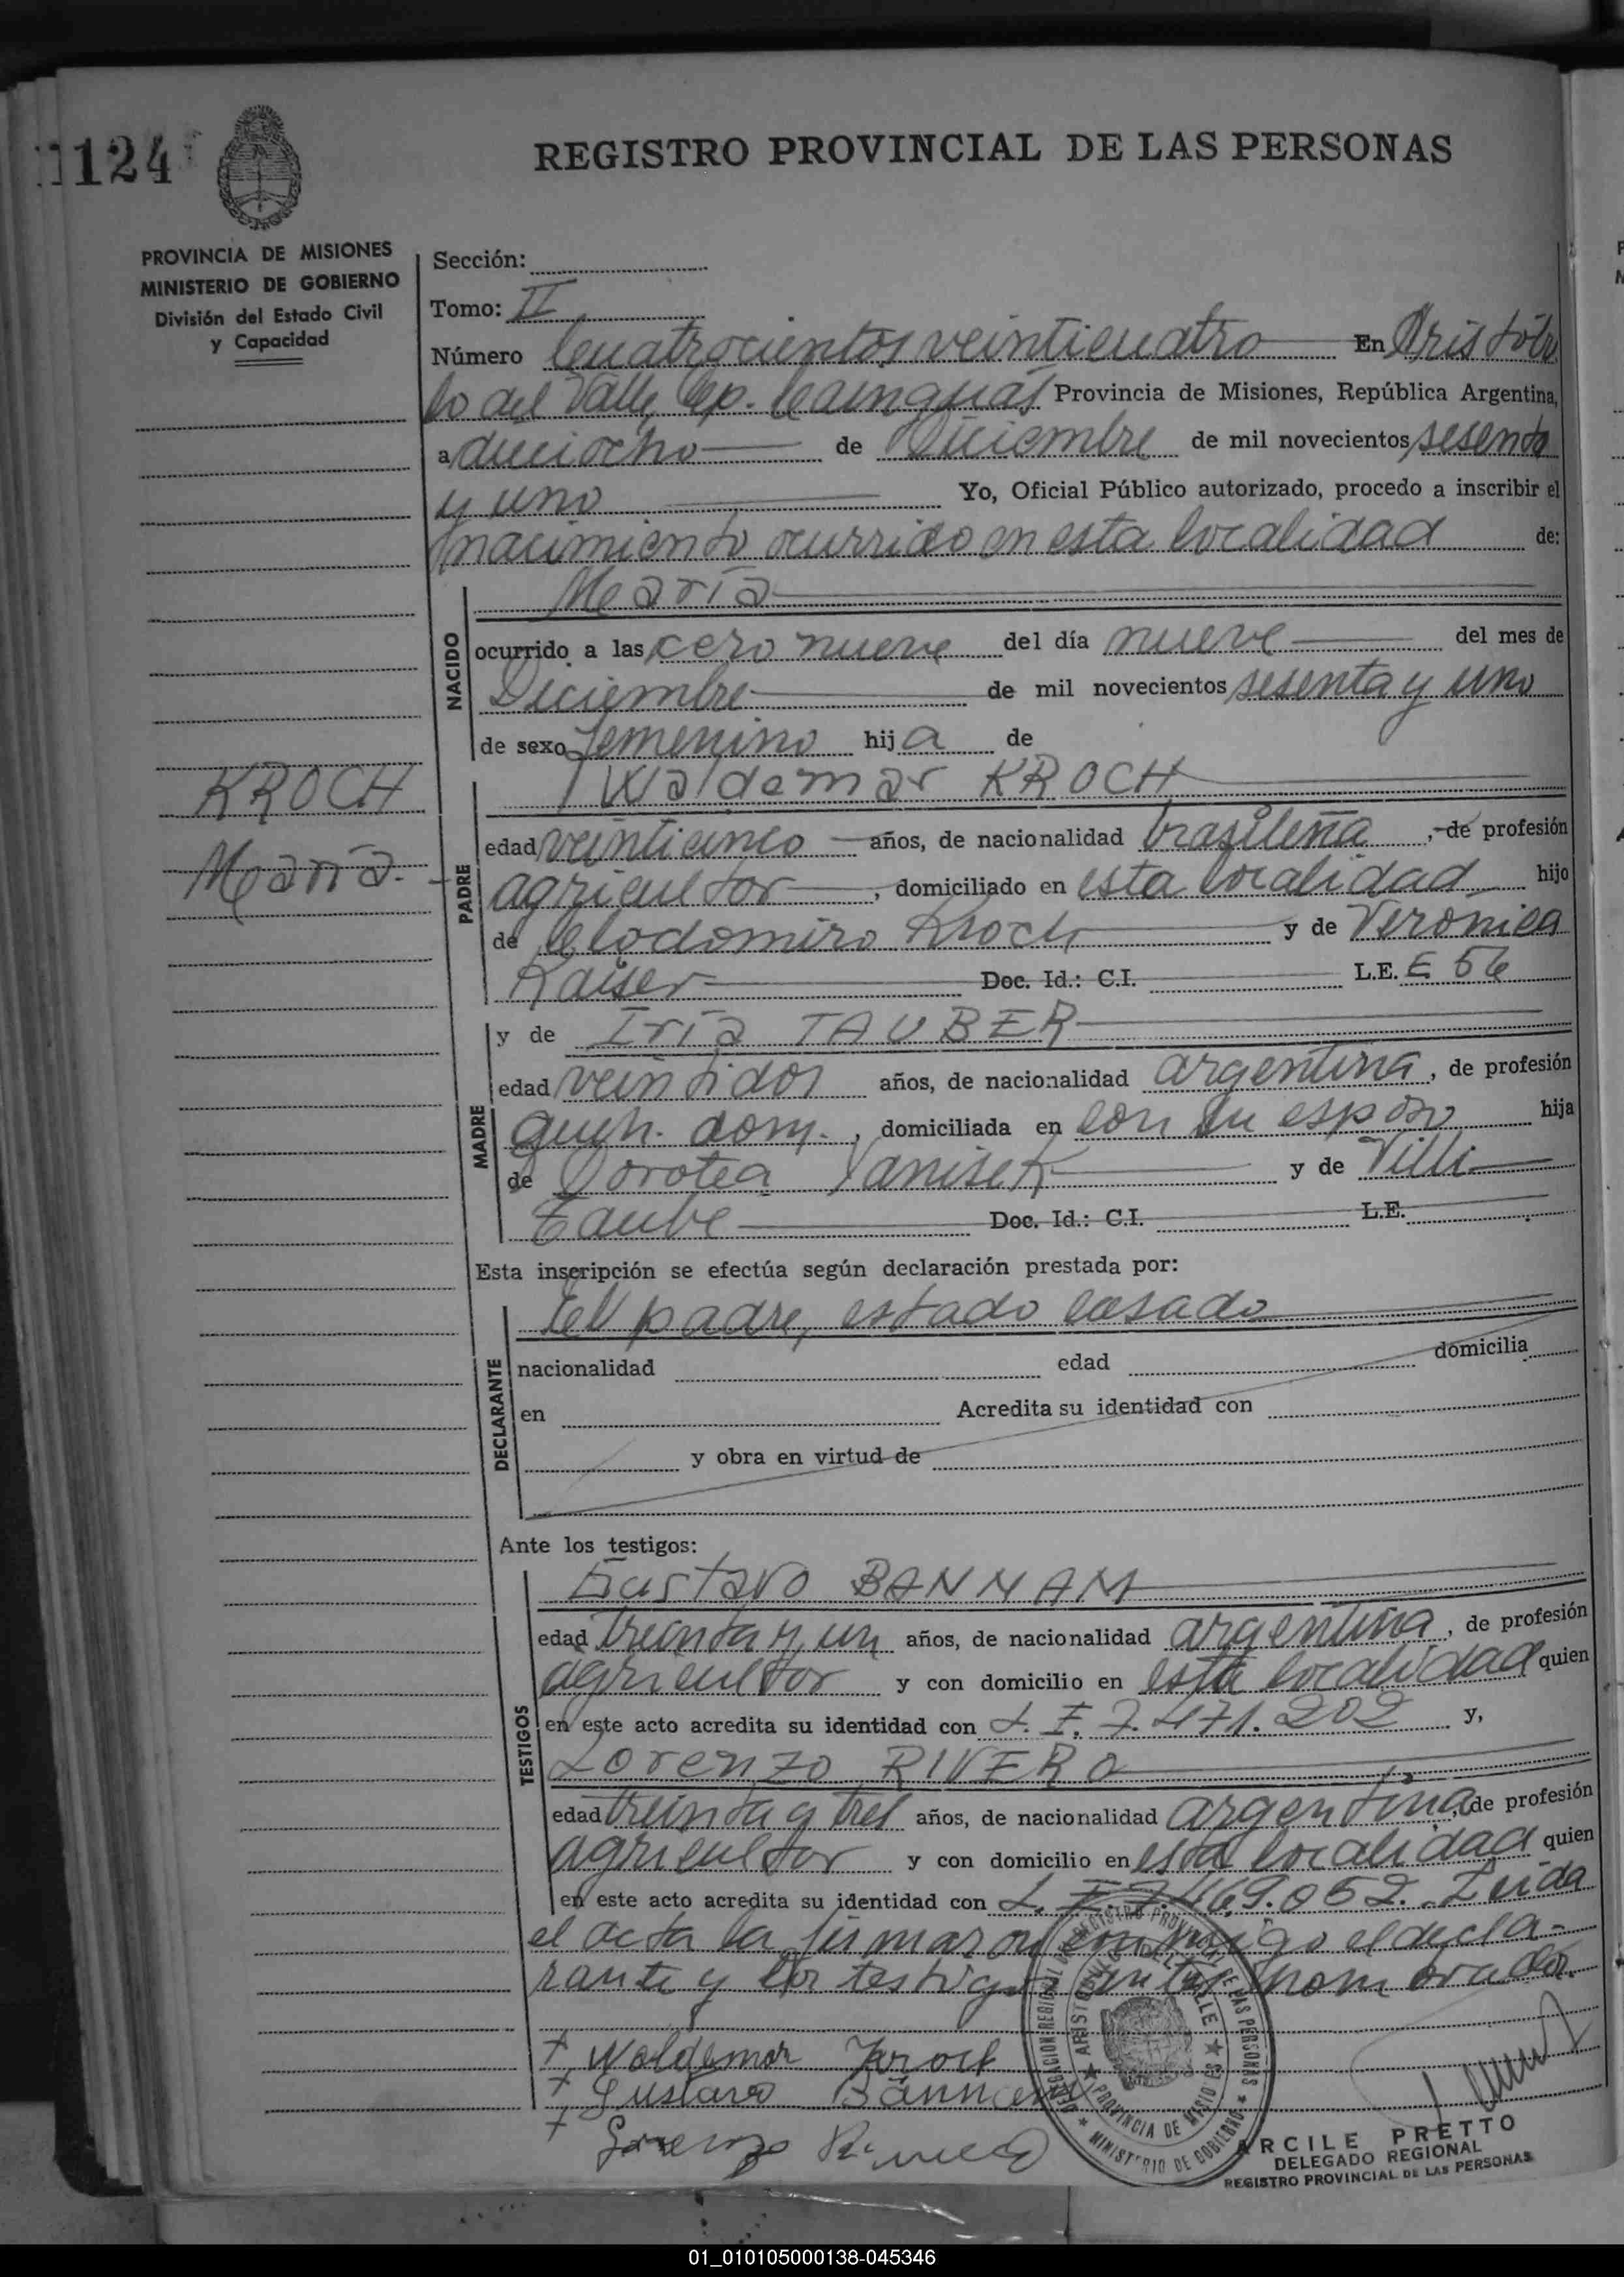 1124
REGISTRO PROVINCIAL DE LAS PERSONAS
PROVINCIA DE MISIONES
MINISTERIO DE GOBIERNO
División del Estado Civil
y Capacidad
Sección:
Tomo: II
Número Cuatrocientos veinticuatro En Aristóbu
lo del Valle, Dep. Cainguás Provincia de Misiones, República Argentina,
a dieciocho de Diciembre de mil novecientos sesenta
y uno Yo, Oficial Público autorizado, procedo a inscribir el
nacimiento ocurrido en esta localidad de:
NACIDO
María
ocurrido a las cero nueve del día nueve del mes de
Diciembre de mil novecientos sesenta y uno
de sexo femenino hija de
KROCH
María.
PADRE
Waldemar KROCH
edad veinticinco años, de nacionalidad brasileña, de profesión
agricultor, domiciliado en esta localidad hijo
de Clodomiro Kroch y de Verónica
Kaiser Doc. Id.: C.I. L.E. E 56
MADRE
y de Iria TAUBER
edad veintidos años, de nacionalidad argentina, de profesión
queh. dom., domiciliada en con su esposo hija
de Dorotea Yanisek y de Villi
Taube Doc. Id.: C.I. L.E.
Esta inscripción se efectúa según declaración prestada por:
DECLARANTE
el padre, estado casado
nacionalidad edad domicilia
en Acredita su identidad con
y obra en virtud de
Ante los testigos:
TESTIGOS
Gustavo BANNAM
edad treinta y un años, de nacionalidad argentina, de profesión
agricultor y con domicilio en esta localidad quien
en este acto acredita su identidad con L. I. 7.471.202 y,
Lorenzo RIVERO
edad treinta y tres años, de nacionalidad argentina, de profesión
agricultor y con domicilio en esta localidad quien
en este acto acredita su identidad con L. I. 7.469.052. Leida
el acta la firmaron conmigo el decla-
rante y los testigos antes nombrados.
+ Waldemar Kroch
+ Gustavo Bännam
+ Lorenzo Rivero
DELEGACION REGIONAL DEL REGISTRO PROVINCIAL DE LAS PERSONAS * MINISTERIO DE GOBIERNO *
ARISTOBULO DEL VALLE ★ PROVINCIA DE MISIONES ★
ARCILE PRETTO
DELEGADO REGIONAL
REGISTRO PROVINCIAL DE LAS PERSONAS
01_010105000138-045346